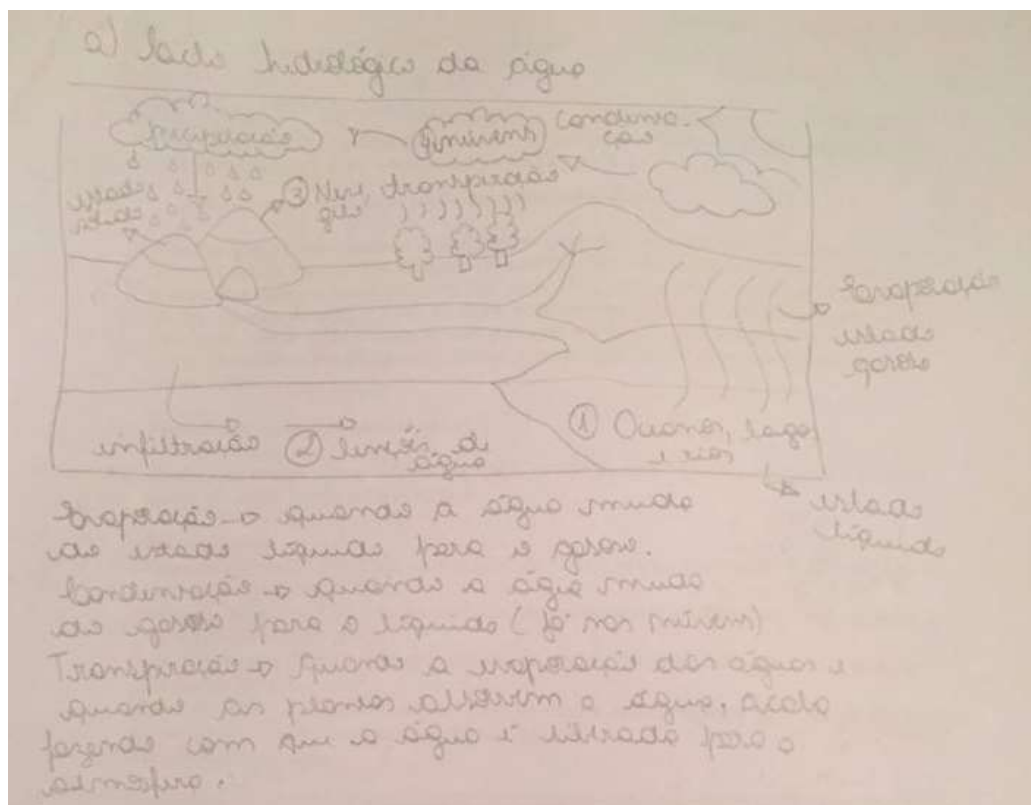 a) Ciclo hidrológico da água
precipitação
④ nuvens
condensa-
ção
estado
sólido
③ Neve,
gelo
transpiração
Evaporação
estado
gasoso
infiltração
② lençóis de
água
① Oceanos, lagos
e rios
estado
líquido
Evaporação → quando a água muda
do estado líquido para o gasoso.
Condensação → quando a água muda
do gasoso para o líquido (já nas núvens)
Transpiração → quando a evaporação das águas e
quando as plantas absorvem a água, acaba
fazendo com que a água é liberada para a
atmosfera.